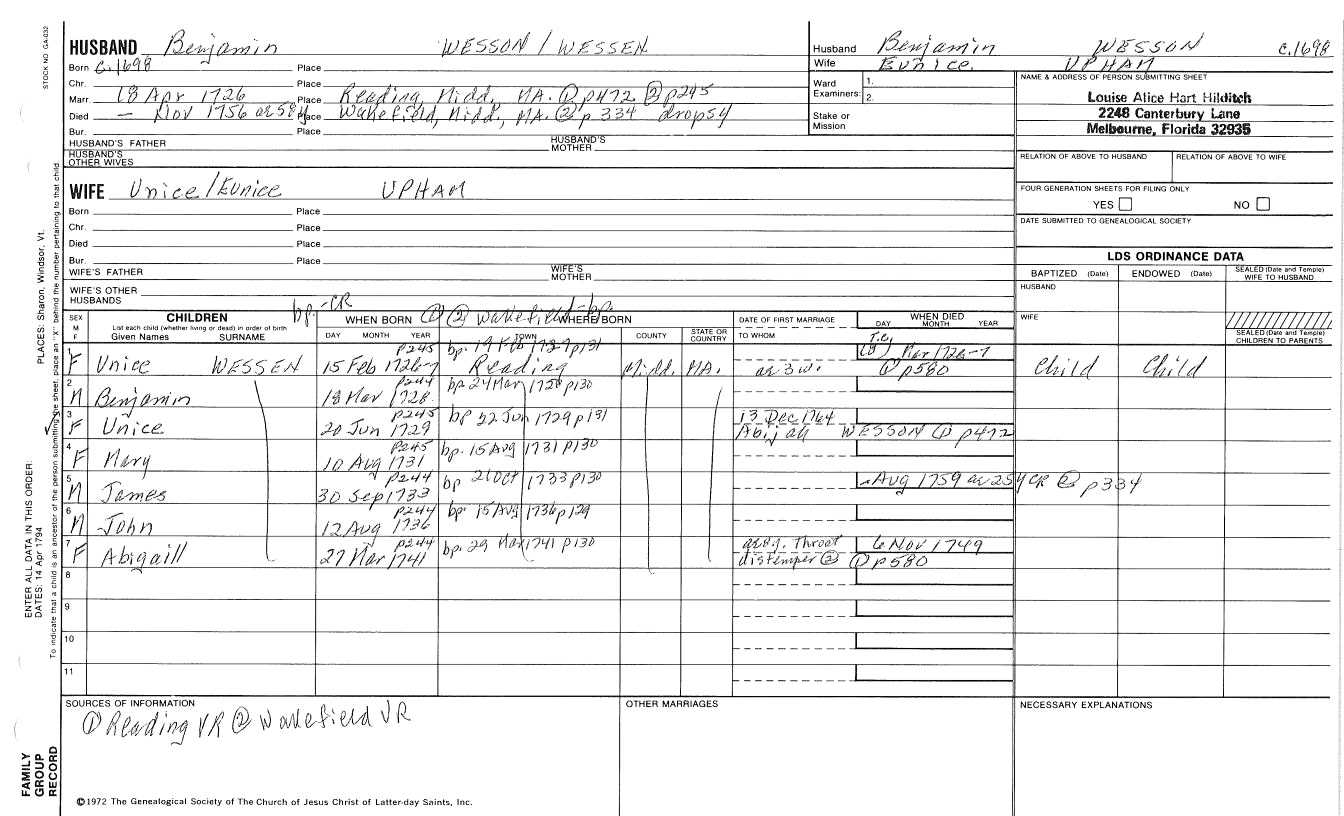 STOCK NO GA-032
HUSBAND Benjamin WESSON / WESSEN
Born c.1698 Place
Chr. Place
Marr 18 Apr 1726 Place Reading, Midd., MA. ① p472 ② p245
Died — Nov 1756 ae 58y Place Wakefield, Midd., MA. ② p 334 dropsy
Bur. Place
HUSBAND'S FATHER HUSBAND'S MOTHER
HUSBAND'S OTHER WIVES
WIFE Unice/Eunice UPHAM
Born Place
Chr. Place
Died Place
Bur. Place
WIFE'S FATHER WIFE'S MOTHER
WIFE'S OTHER HUSBANDS
Husband Benjamin WESSON c.1698
Wife Eunice. UPHAM
Ward 1.
Examiners: 2.
Stake or Mission
NAME & ADDRESS OF PERSON SUBMITTING SHEET
Louise Alice Hart Hilditch
2248 Canterbury Lane
Melbourne, Florida 32935
RELATION OF ABOVE TO HUSBAND RELATION OF ABOVE TO WIFE
FOUR GENERATION SHEETS FOR FILING ONLY
YES NO
DATE SUBMITTED TO GENEALOGICAL SOCIETY
LDS ORDINANCE DATA
BAPTIZED (Date) ENDOWED (Date) SEALED (Date and Temple) WIFE TO HUSBAND
HUSBAND
WIFE
SEALED (Date and Temple) CHILDREN TO PARENTS
bp.-CR ① ② Wakefield-bp.
SEX M F CHILDREN WHEN BORN WHERE BORN DATE OF FIRST MARRIAGE WHEN DIED
List each child (whether living or dead) in order of birth
Given Names SURNAME DAY MONTH YEAR TOWN COUNTY STATE OR COUNTRY TO WHOM DAY MONTH YEAR
p245 bp. 19 Feb 1727 p131 Mar 1726-7
F Unice WESSEN 15 Feb 1726-7 Reading Midd. MA. ae 3 w. ① p580 Child Child
2 p244 bp 24 Mar 1728 p130
M Benjamin 18 Mar 1728
3 p245 bp 22 Jun 1729 p131 13 Dec 1764
F Unice 20 Jun 1729 Abijah WESSON ① p472
4 p245 bp. 15 Aug 1731 p130
F Mary 10 Aug 1731
5 p244 bp 21 Oct 1733 p130 - Aug 1759 ae 25y CR ② p334
M James 30 Sep 1733
6 p244 bp. 15 Aug 1736 p129
M John 12 Aug 1736
7 p244 bp. 29 Mar 1741 p130 ae 8y. Throat 6 Nov 1749
F Abigaill 27 Mar 1741 distemper ② ① p580
8
9
10
11
SOURCES OF INFORMATION
① Reading VR ② Wakefield VR
OTHER MARRIAGES
NECESSARY EXPLANATIONS
©1972 The Genealogical Society of The Church of Jesus Christ of Latter-day Saints, Inc.
ENTER ALL DATA IN THIS ORDER:
DATES: 14 Apr 1794 PLACES: Sharon, Windsor, Vt.
To indicate that a child is an ancestor of the person submitting the sheet, place an "X" behind the number pertaining to that child
FAMILY GROUP RECORD